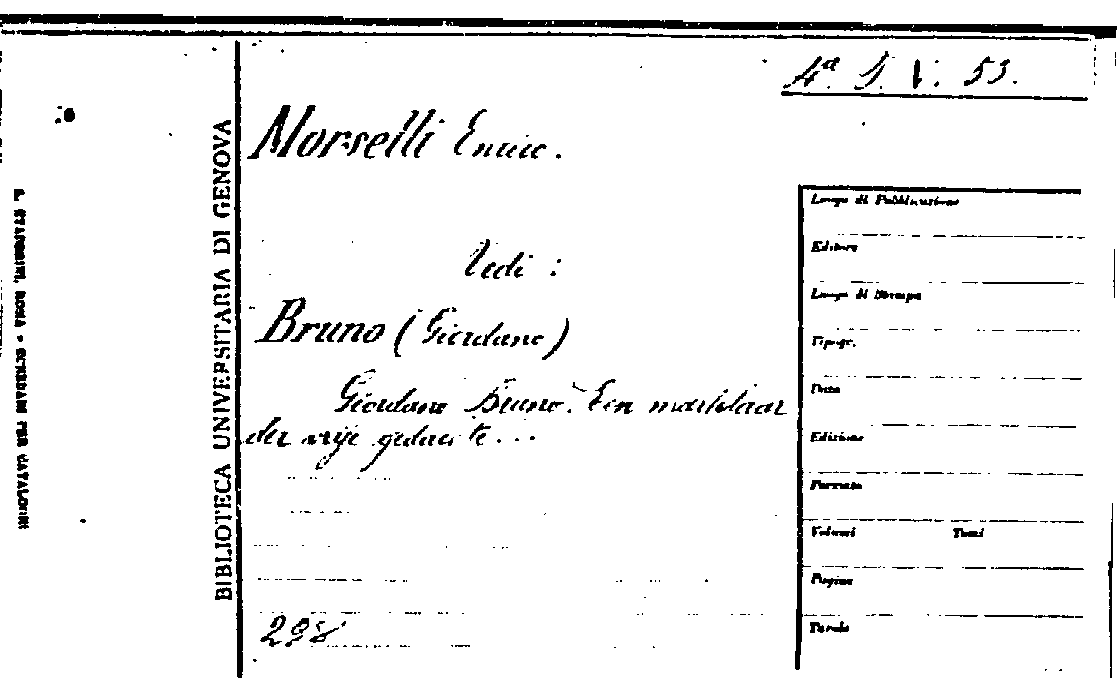 4ª. S. V. 53.
Morselli Enrico.
Vedi :
Bruno (Giordano)
Giordano Bruno. Een martelaar
der vrije gedachte...
298
BIBLIOTECA UNIVERSITARIA DI GENOVA
ROMA - SCHEDARI PER CATALOGHI
Luogo di Pubblicazione
Editore
Luogo di Stampa
Tipogr.
Data
Edizione
Formato
Volumi Tomi
Pagine
Tavole